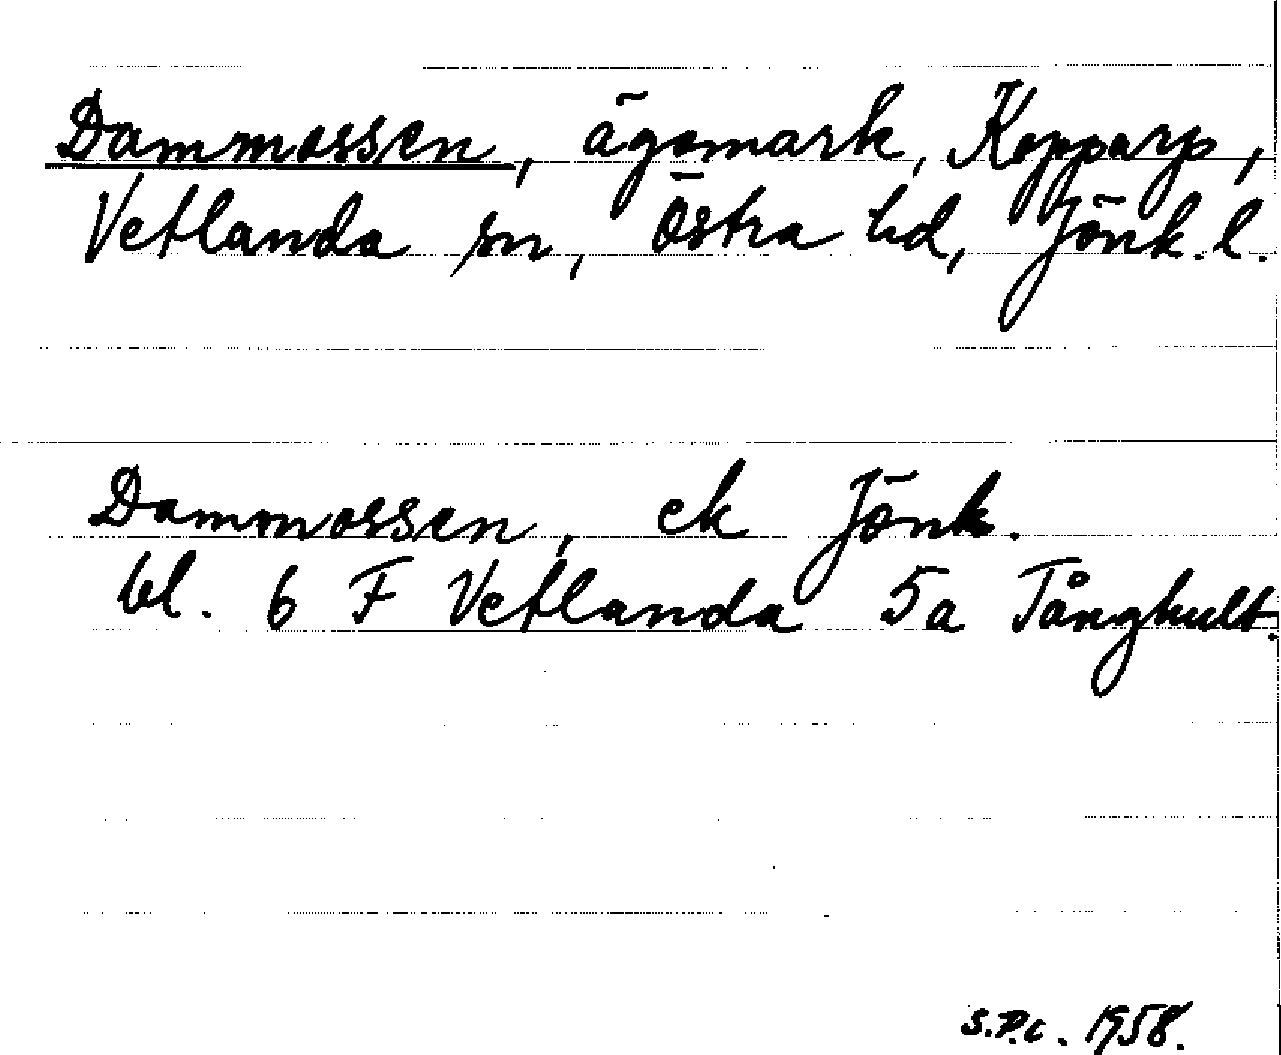 Dammossen, ägomark, Kopparp,
Vetlanda sn, Östra hd, Jönk. l.
Dammossen, ek Jönk.
bl. 6 F Vetlanda 5a Tånghult.
S.P.C. 1958.